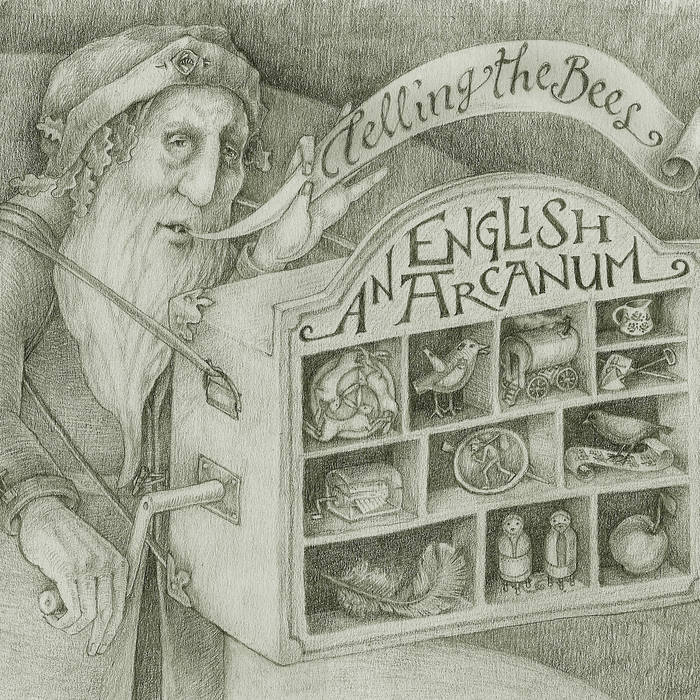 Telling the Bees
AN ENGLISH
ARCANUM